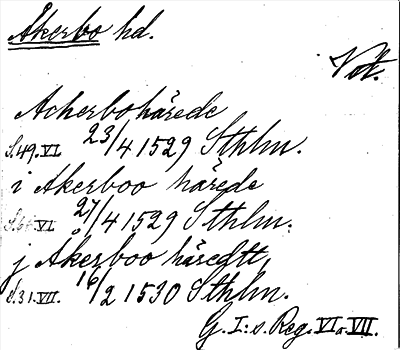 Åkerbo hd.
Vät.
Acherbo härede
S. 49. VI. 23/4 1529 Sthlm.
i Åkerboo härede
VI. 27/4 1529 Sthlm.
j Åkerboo häredtt,
S. 31. VII. 16/2 1530 Sthlm.
G. I:s Reg. VI o. VII.